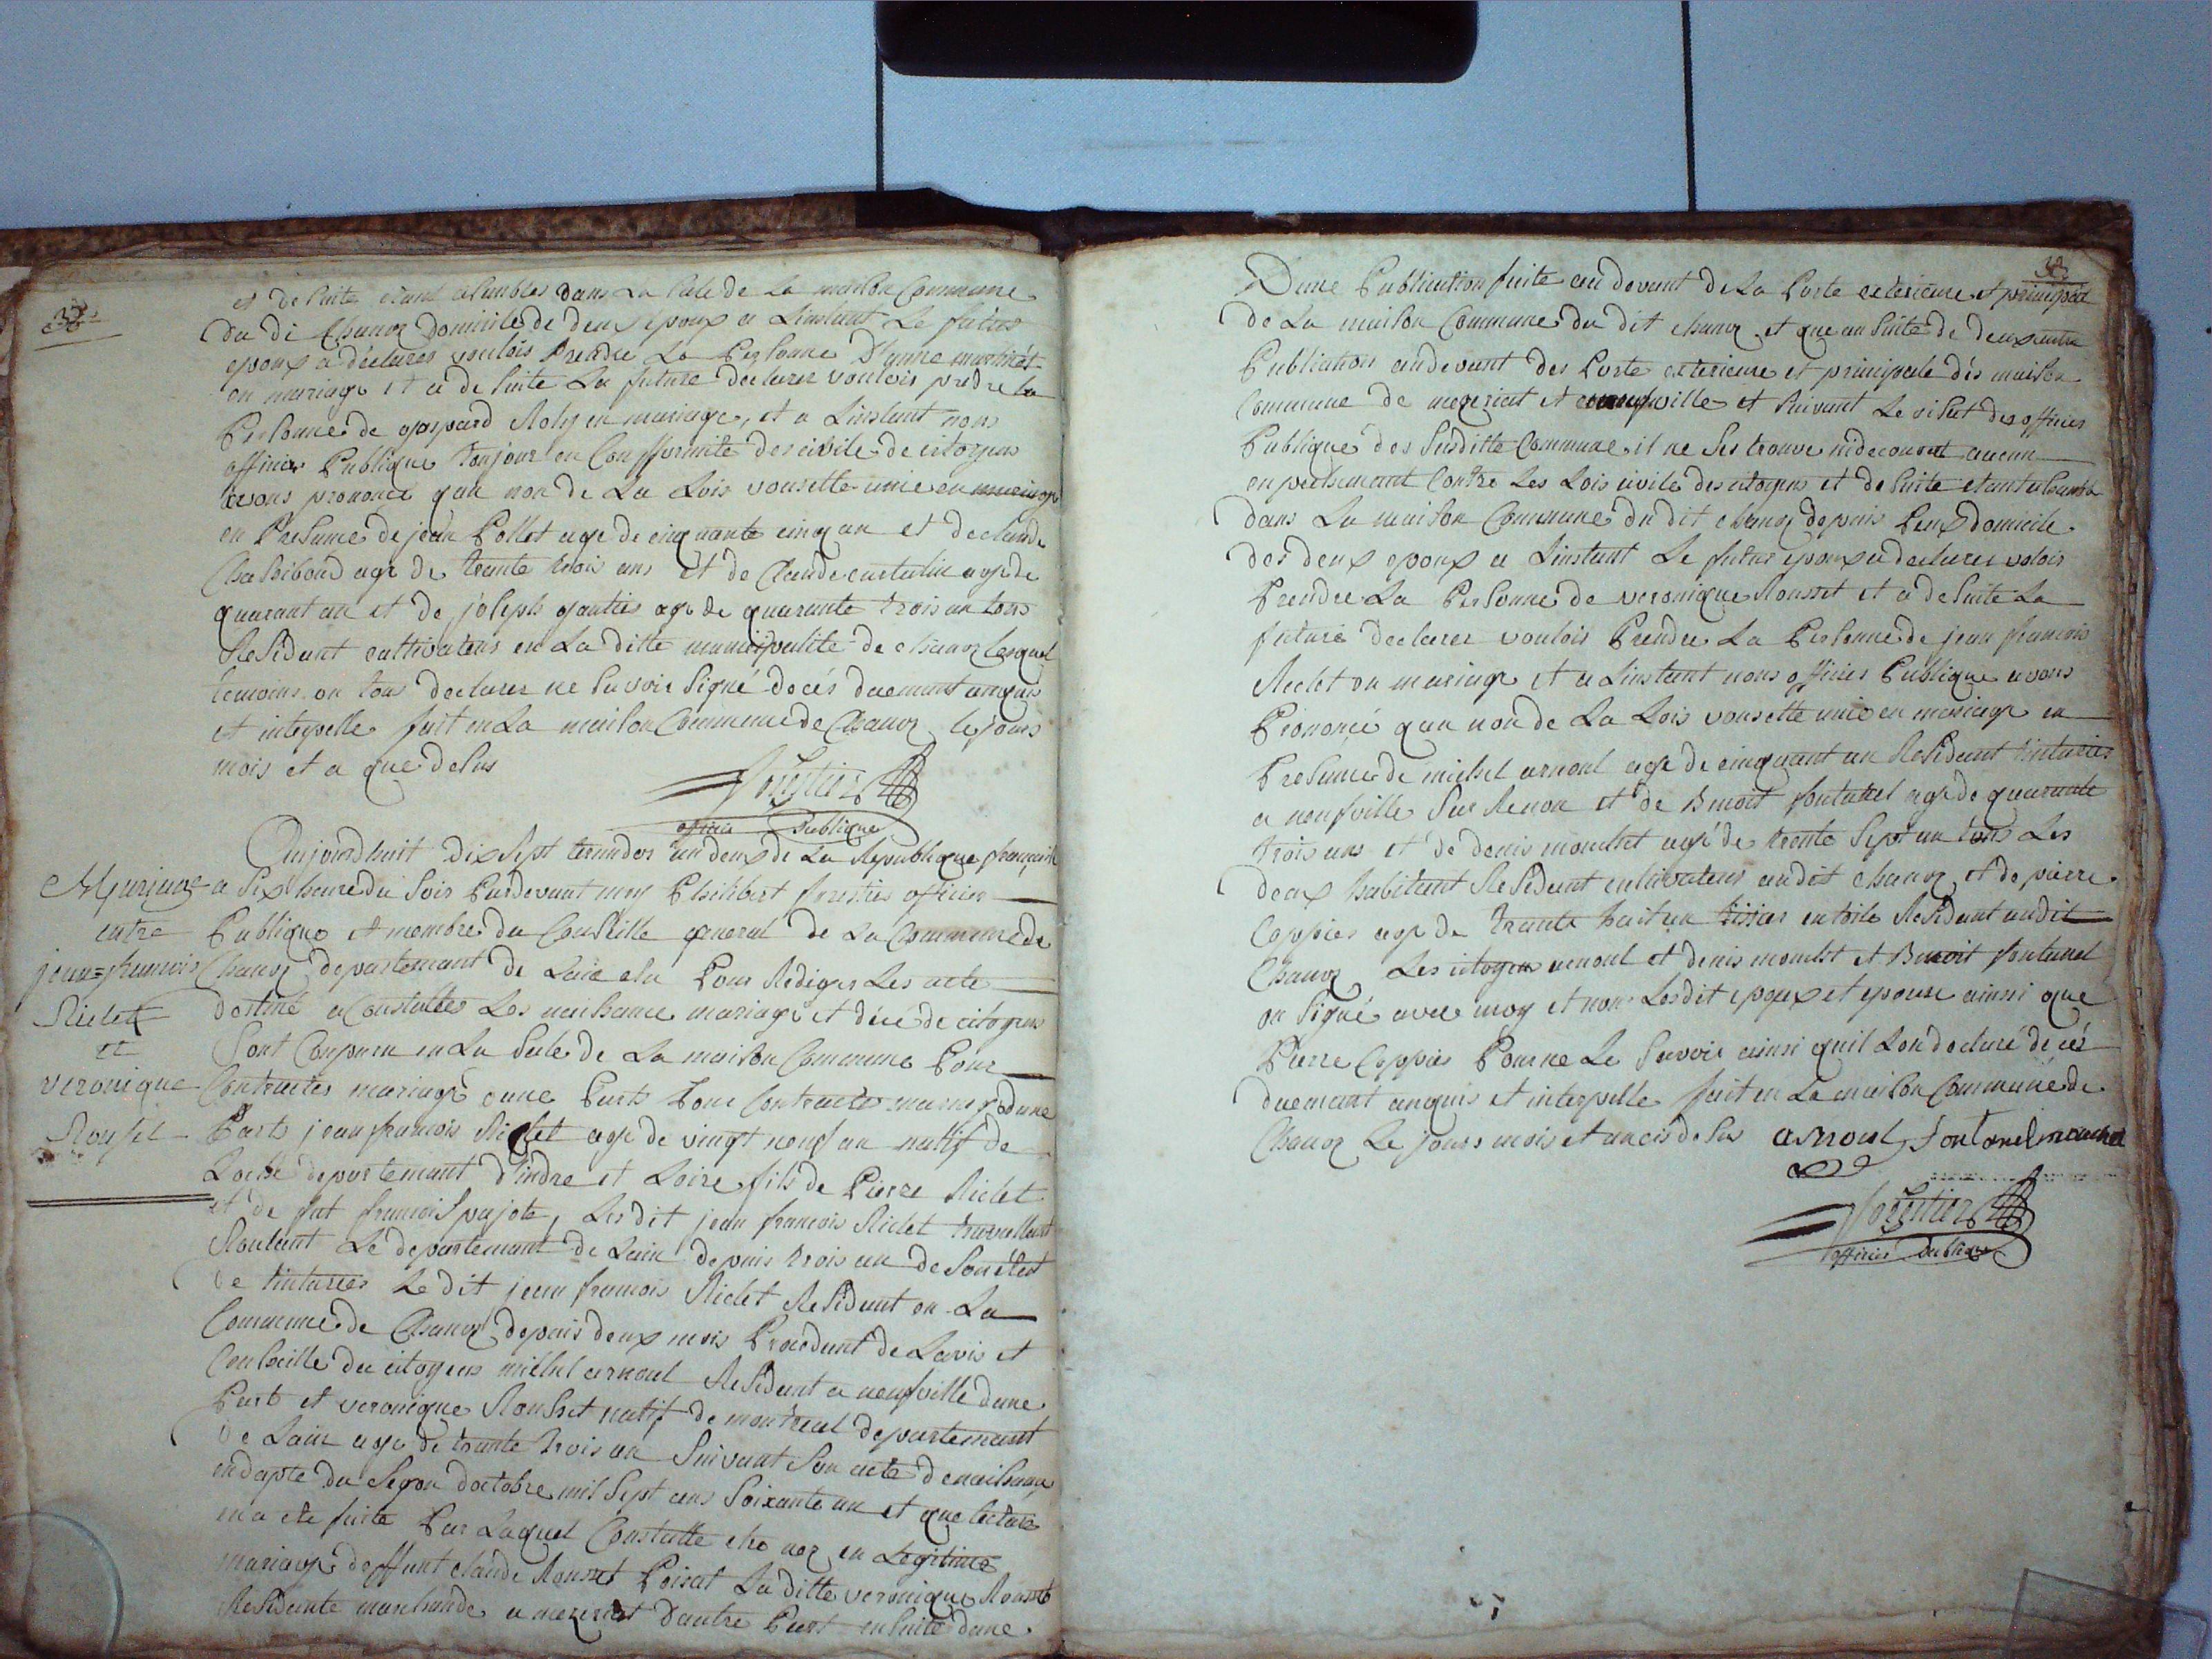 et de suite etant asembles dans La sale de La maison Commune
du di Chanoz Domicile de deux epoux a Linstant Le futur
epoux a declarer voulois Prendre La Personne
en mariage et a de suite La future declarer voulois predre La
Personne de gaspard Roly en mariage, et a Linstant nous
officier Publique toujour en Confformite des de citoyens
avons prononce quau non de La Lois vousette unie en mariage
en Presance de jean Pollet age de cinquante cinq an et de claude
Chasibond age de trante trois ans et de Claude age de
quarant an et de joseph gautier age de quarante trois an tous
Residant cultivateur en La ditte municipalite de chanoz Lesquel
temoins on tous declarer ne savoir signé de ces duemant anquis
et interpelle fait en La maison Commune de Chanoz le jours
mois et a que desus
Forestier
officier Publique
Aujourdhuit dix sept an deux de La Republique français
a six heure du soir Pardevant moy Philibert forestier officier
Publique et membre du Conseille general de La Commune de
Chanoz departemant de Lain elu Pour Rediger Les acte
destiné a Constatter Les naissance mariage et décé de citoyens
Sont Conparu en La sale de La maison Commune Pour
Contracter mariage dune Parts Pour Contracter mariage dune
Parts jean francois Riclet age de vingt neuf an nattif de
Loche departemant d'indre et Loire fils de Pierre Riclet
et de fut francois pajote, Lesdit jean francois Riclet travaillant
Roulant Le departemant de Lain depuis trois an de son état
de tinturier Le dit jean francois Riclet Residant en La
Commune de Chanoz depuis deux mois Procedant de Lavis et
Conseille du citoyens michel arnoul Residant a neufville dune
Part et veronique Rousset natif de montreal departemant
de Lain age de trante trois an Suivant son acte de naissance
en dapte du segon doctobre mil sept cens soixante un et que lecture
en a ete faite Par Laquel Constatte etre nez en Legitime
mariage de deffunt claude Rousset Poisat La ditte veronique Rousset
Residante marchande a mezeriat Dautre Part ensuite dune
Mariage
entre
jean=francois
Riclet
et
veronique
Rousset
Dune Publication faite au devant de La Porte exterieure et principal
de La maison Commune du dit chanoz et que an suite de deux autre
Publication audevant des Porte exterieure et principale dés maison
Commune de mezeriat et neufville et suivant Le des officier
Publique des susditte Commune il ne ses trouve ni decouvert aucun
enpechemant Contre Les Lois civile des citoyens et de suite etant
dans La maison Commune du dit chanoz depuis Leur domicile
des deux epoux a Linstant Le futur epoux a declarer volois
Prendre La Personne de veronique Rousset et a de suite La
future declarer voulois Prendre La Personne de jean francois
Riclet en mariage et a Linstant nous officier Publique avons
Prononcé quau non de La Lois vousette unie en mariage en
Presance de michel arnoul age de cinquant an Residant tinturier
a neufville sur Renon et de Benoit fontanel age de quarante
trois ans et de denis monchet agé de trente sept an tous Les
deux habitant Residant cultivateur audit chanoz et de pierre
Coppier age de trante huit an tissier en toile Residant audit
Chanoz Les citoyens arnoul et denis monchet et Benoit fontanel
on signé avec moy et non Lesdit epoux et epouse ainsi que
Pierre Coppier Pour ne Le savoir ainsi quil Lon declaré de cé
duemant anquis et interpelle fait en La maison Commune de
Chanoz Le jours mois et an cis desus arnoul fontanel monchet
Forestier
officier Publique